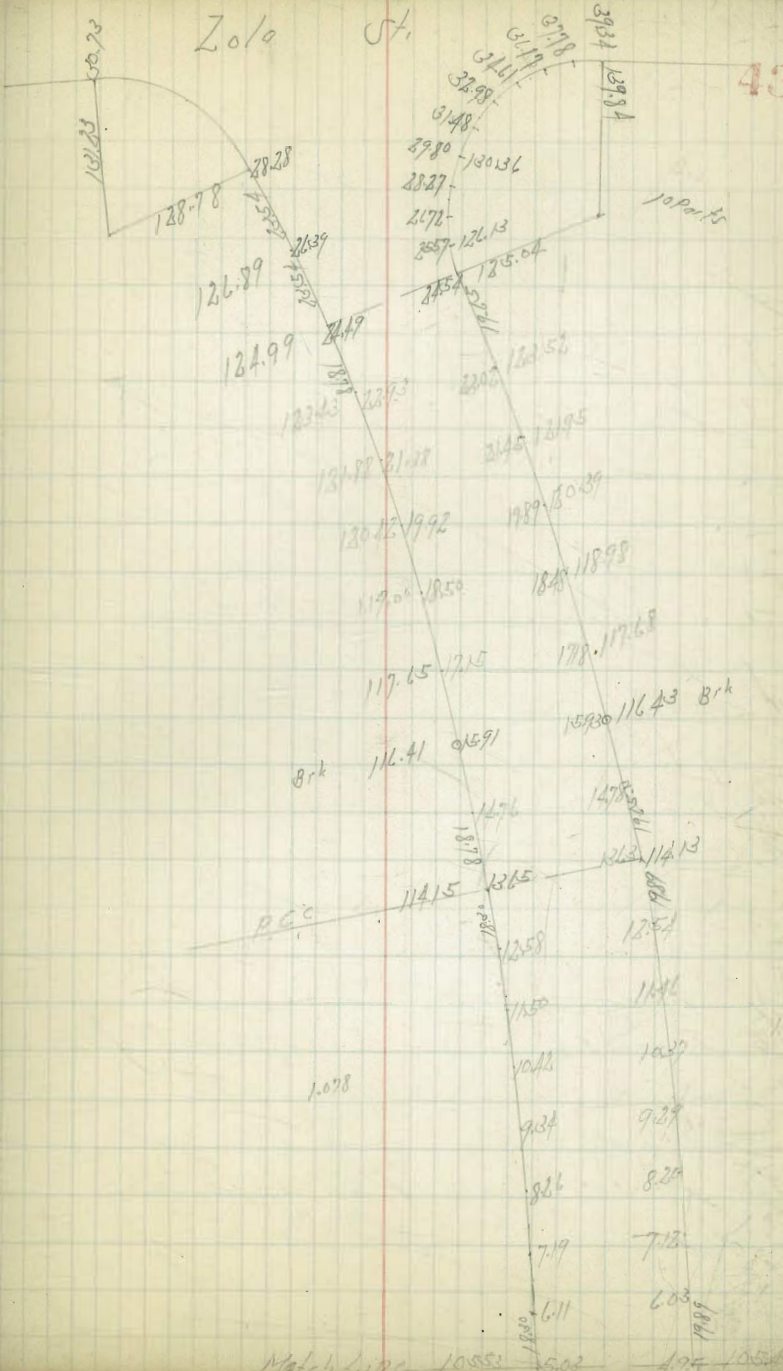 Zola St.
43
30.73
131.23
128.78
28.28
26.39
126.89
24.49
124.99
18.78
123.43 22.93
121.88 21.38
120.42 19.92
119.00 18.50
117.65 17.15
Brk 116.41 15.91
14.76
18.78
114.15 13.65
P.C.C.
18.00
12.58
11.50
10.42
1.078
9.34
8.26
7.19
6.11
18.00
39.34
139.84
37.78
36.19
34.61
32.98
31.48
29.80 130.36
28.27
26.72
25.57 126.13
10 parts
24.54 125.04
19.265
22.02 122.52
21.45 121.95
19.89 120.39
18.48 118.98
17.18 117.68
15.93 116.43 Brk
14.78
19.265
13.63 114.13
19.89
12.54
11.46
10.37
9.29
8.20
7.12
6.03
Match Line 105.53 5.03 4.95